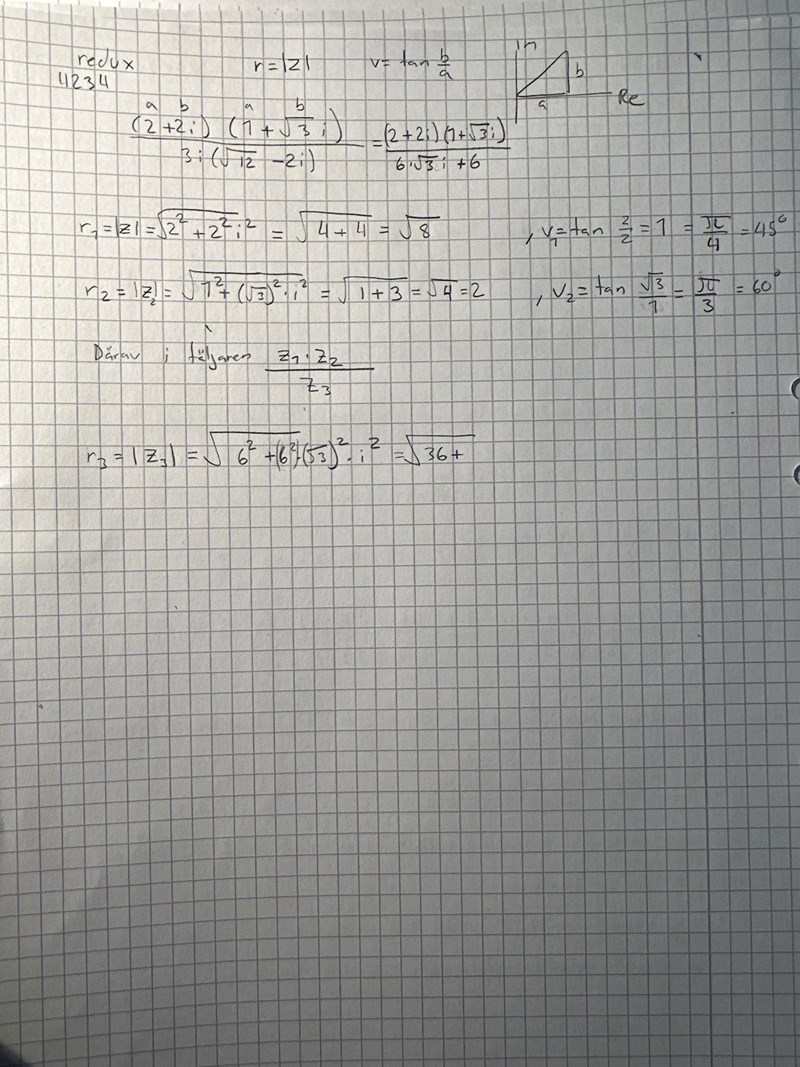 redux r = |z| v = tan b/a In b a Re
4234
a b a b
(2 + 2i) (1 + √3 i) / 3i (√12 - 2i) = (2+2i)(1+√3i) / 6·√3 i + 6
r₁ = |z| = √(2² + 2² i²) = √(4 + 4) = √8 , v₁ = tan 2/2 = 1 = π/4 = 45°
r₂ = |z₂| = √(1² + (√3)² · i²) = √(1 + 3) = √4 = 2 , v₂ = tan √3/1 = π/3 = 60°
Därav i täljaren z₁ · z₂ / z₃
r₃ = |z₃| = √(6² + (6²)·(√3)² · i²) = √(36 +